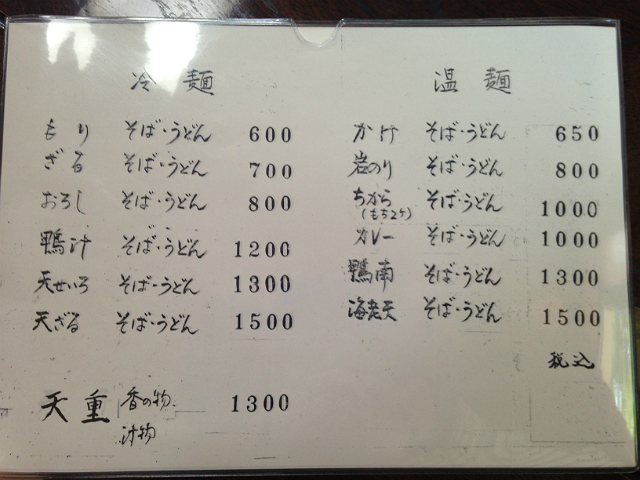 冷麺
もり そば・うどん 600
ざる そば・うどん 700
おろし そば・うどん 800
鴨汁 そば・うどん 1200
天せいろ そば・うどん 1300
天ざる そば・うどん 1500
天重 香の物、 1300
汁物
温麺
かけ そば・うどん 650
岩のり そば・うどん 800
ちから そば・うどん 1000
(もち2ケ)
カレー そば・うどん 1000
鴨南 そば・うどん 1300
海老天 そば・うどん 1500
税込